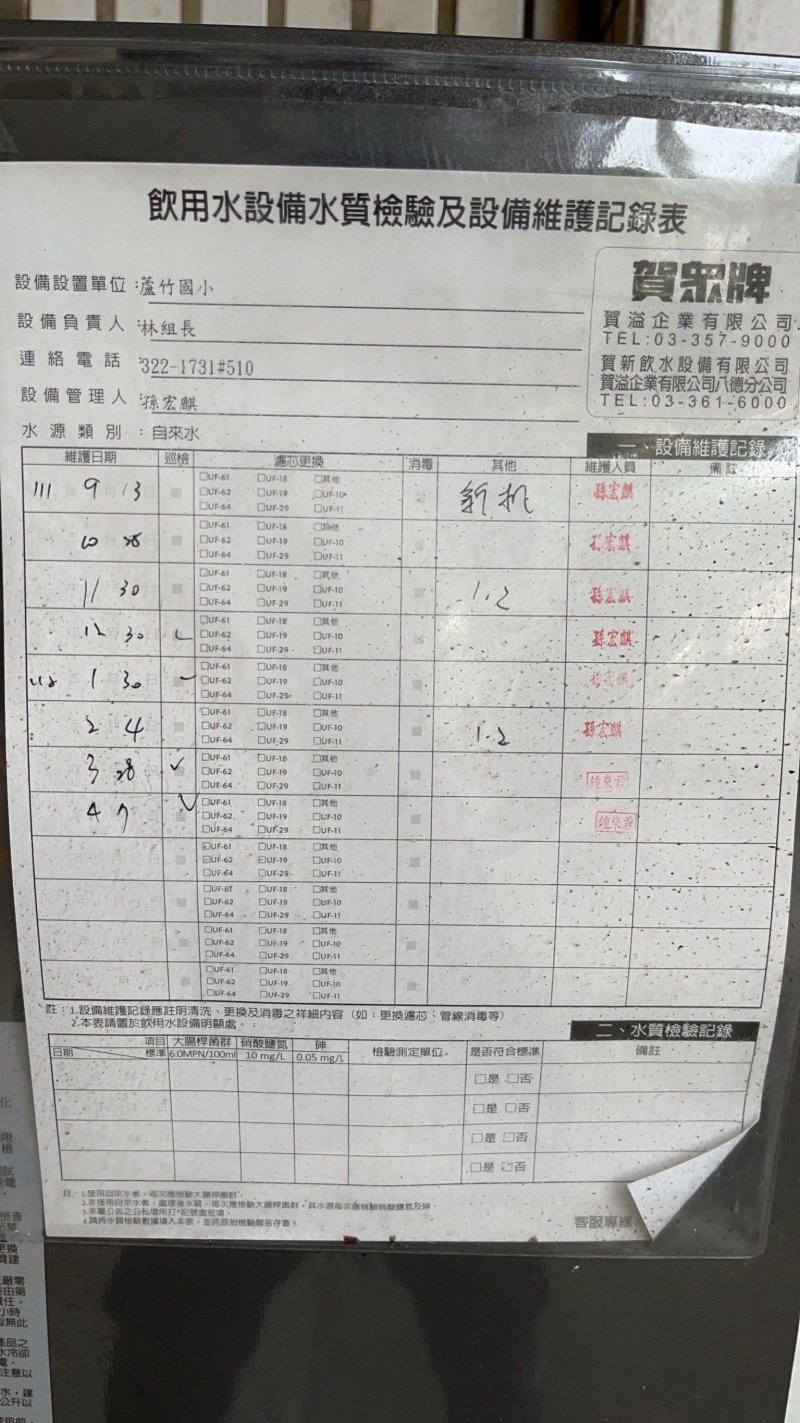 飲用水設備水質檢驗及設備維護記錄表
設備設置單位:蘆竹國小
設備負責人:林組長
連絡電話:322-1731#510
設備管理人:孫宏麒
水源類別:自來水
賀眾牌
賀溢企業有限公司
TEL:03-357-9000
賀新飲水設備有限公司
賀溢企業有限公司八德分公司
TEL:03-361-6000
一、設備維護記錄
維護日期 巡檢 濾芯更換 消毒 其他 維護人員 備註
111 9 13 □UF-61 □UF-18 □其他 新机 孫宏麒
□UF-62 □UF-19 □UF-10
□UF-64 □UF-29 □UF-11
10 28 □UF-61 □UF-18 □其他 孫宏麒
□UF-62 □UF-19 □UF-10
□UF-64 □UF-29 □UF-11
11 30 □UF-61 □UF-18 □其他 1.2 孫宏麒
□UF-62 □UF-19 □UF-10
□UF-64 □UF-29 □UF-11
12 30 □UF-61 □UF-18 □其他 孫宏麒
□UF-62 □UF-19 □UF-10
□UF-64 □UF-29 □UF-11
1 30 □UF-61 □UF-18 □其他 孫宏麒
□UF-62 □UF-19 □UF-10
□UF-64 □UF-29 □UF-11
2 4 □UF-61 □UF-18 □其他 1.2 孫宏麒
□UF-62 □UF-19 □UF-10
□UF-64 □UF-29 □UF-11
3 28 ✓ □UF-61 □UF-18 □其他
□UF-62 □UF-19 □UF-10
□UF-64 □UF-29 □UF-11
4 7 ✓ □UF-61 □UF-18 □其他
□UF-62 □UF-19 □UF-10
□UF-64 □UF-29 □UF-11
□UF-61 □UF-18 □其他
□UF-62 □UF-19 □UF-10
□UF-64 □UF-29 □UF-11
□UF-61 □UF-18 □其他
□UF-62 □UF-19 □UF-10
□UF-64 □UF-29 □UF-11
□UF-61 □UF-18 □其他
□UF-62 □UF-19 □UF-10
□UF-64 □UF-29 □UF-11
□UF-61 □UF-18 □其他
□UF-62 □UF-19 □UF-10
□UF-64 □UF-29 □UF-11
註:1.設備維護記錄應註明清洗、更換及消毒之祥細內容(如:更換濾芯、管線消毒等)
2.本表請置於飲用水設備明顯處。
二、水質檢驗記錄
項目 大腸桿菌群 硝酸鹽氮 砷 檢驗測定單位 是否符合標準 備註
日期 標準 6.0MPN/100ml 10 mg/L 0.05 mg/L
□是 □否
□是 □否
□是 □否
□是 □否
註:1.接用自來水者,每次應檢驗大腸桿菌群
2.非接用自來水者,處理後水質,每次應檢驗大腸桿菌群,其水源每次應檢驗硝酸鹽氮及砷
3.非屬公告之公私場所打*記號處免填。
4.請將水質檢驗數據填入本表,並將原始檢驗報告存查。
客服專線